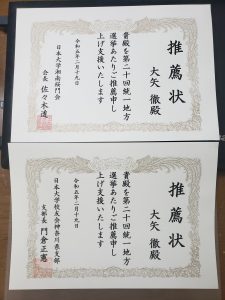 推薦状
大矢 徹殿
貴殿を第二十回統一地方
選挙あたりご推薦申し
上げ支援いたします
令和五年二月十九日
日本大学湘南桜門会
会長 佐々木道
推薦状
大矢 徹殿
貴殿を第二十回統一地方
選挙あたりご推薦申し
上げ支援いたします
令和五年二月十九日
日本大学校友会神奈川県支部
支部長 門倉正憲